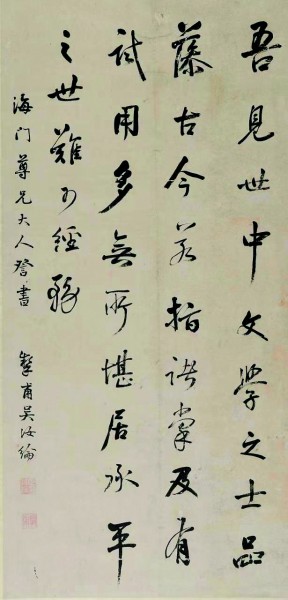 吾見世中文學之士品
藻古今若指諸掌及有
試用多無所堪居承平
之世難可經務
海门尊兄大人詧書
摯甫吴汝綸